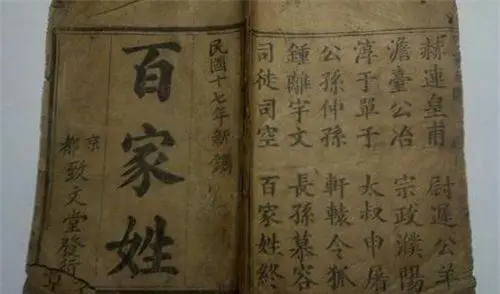 赫連皇甫 尉遲公羊
澹臺公冶 宗政濮陽
淳于單于 大叔申屠
公孫仲孫 軒轅令狐
鍾離宇文 長孫慕容
司徒司空 百家姓終
民國十七年新鐫
百家姓
京都致文堂發行